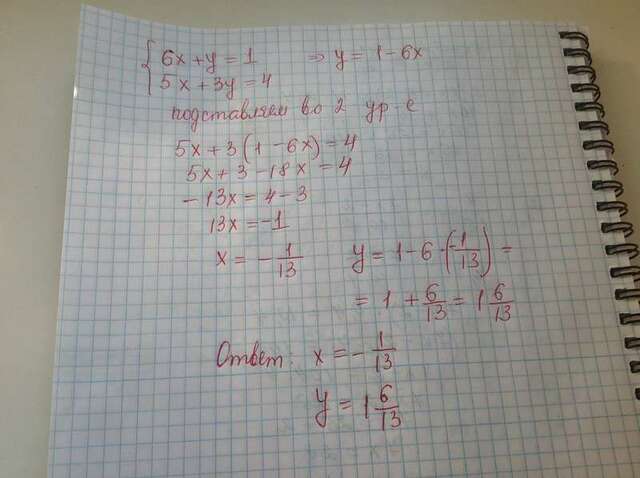 { 6x + y = 1 ⇒ y = 1 - 6x
5x + 3y = 4
подставляем во 2 ур-е
5x + 3(1 - 6x) = 4
5x + 3 - 18x = 4
- 13x = 4 - 3
13x = -1
x = - 1/13 y = 1 - 6 · (-1/13) =
= 1 + 6/13 = 1 6/13
Ответ: x = - 1/13
y = 1 6/13